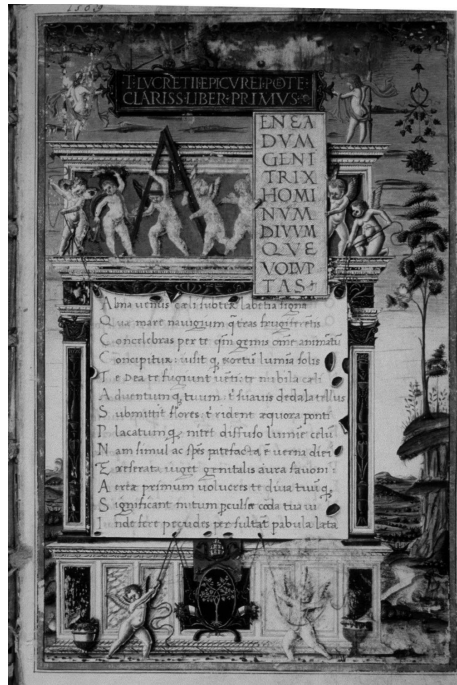 T·LVCRETII·EPICVREI·POTE·
CLARISS·LIBER·PRIMVS·
A
ENEA
DVM
GENI
TRIX
HOMI
NVM
DIVVM
QVE
VOLVP
TAS
Alma uenus cæli subter labētia signa
Quæ mare nauigium q̄ terras frugiferētis
Concelebras per te qm̄ genus omē animātū
Concipitur: uisit q; exortū lumīa solis
Te Dea te fugiunt uēti: te nubila cæli
Aduentumq; tuum: t̄ suauis dedala tellus
Submittit flores: t̄ rident æquora ponti
Placatumq; nitet diffuso lumīe celū
Nam simul ac spēs patefacta ē uerna diei
Et reserata uiget genitalis aura fauoni
Aeriæ primum uolucres te diua tuūq;
Significant initum pculsæ corda tua ui
Inde feræ pecudes per sultāt pabula læta